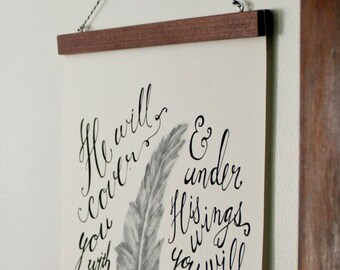 He will
cover
you
with
&
under
His
wings
you will